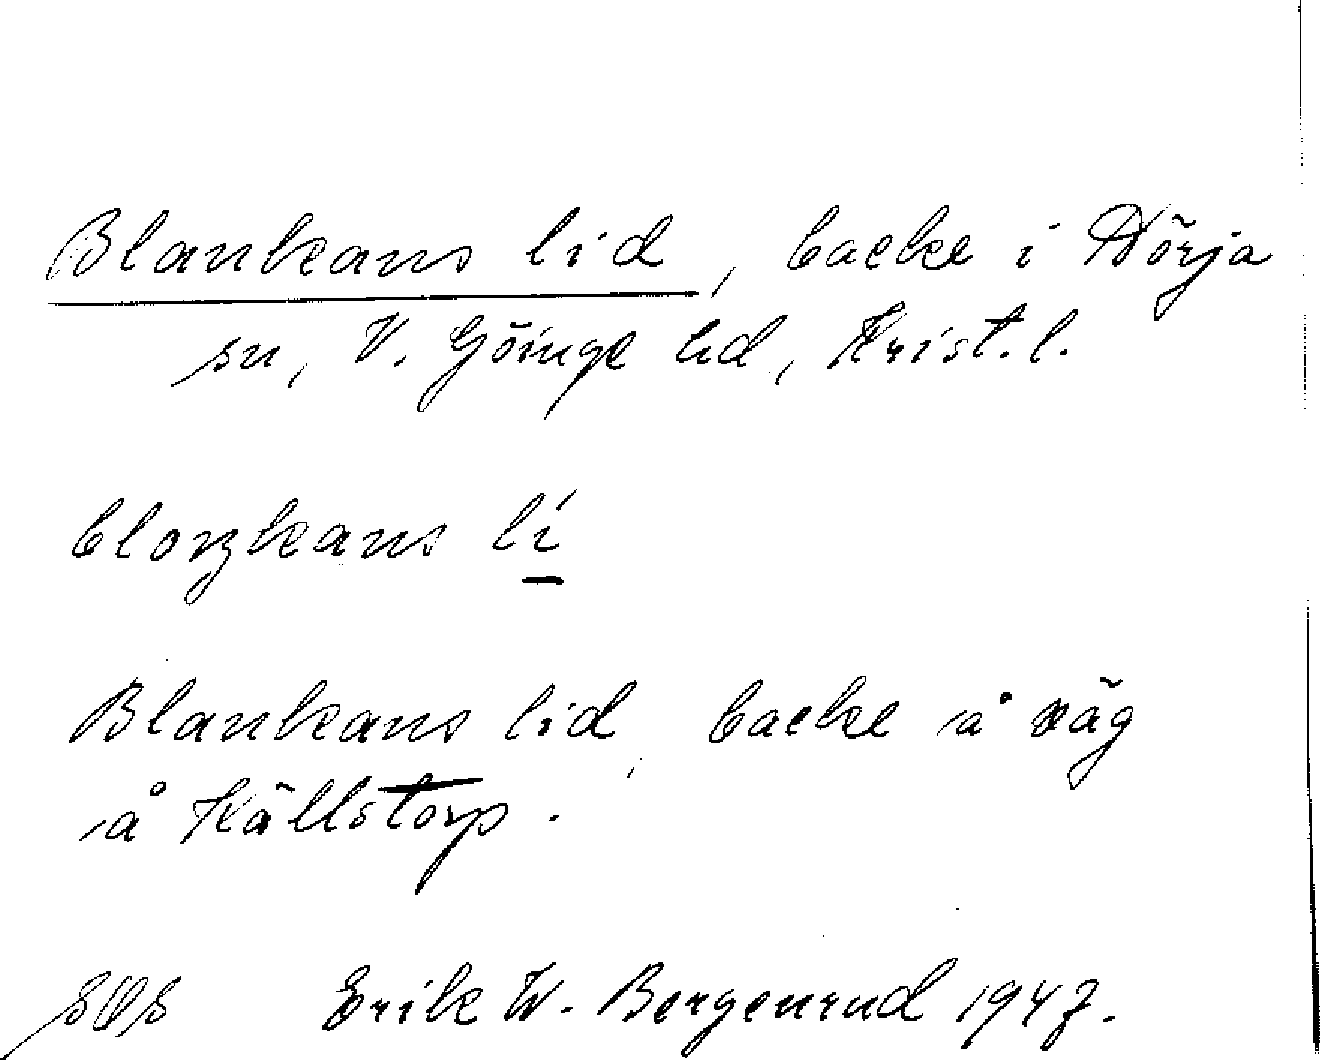 Blankans lid, backe i Nörja
sn, V. Göinge hd, Krist. l.
bloŋkans li
Blankans lid, backe å väg
å Källstorp.
SOS Erik W. Bergenrud 1947.